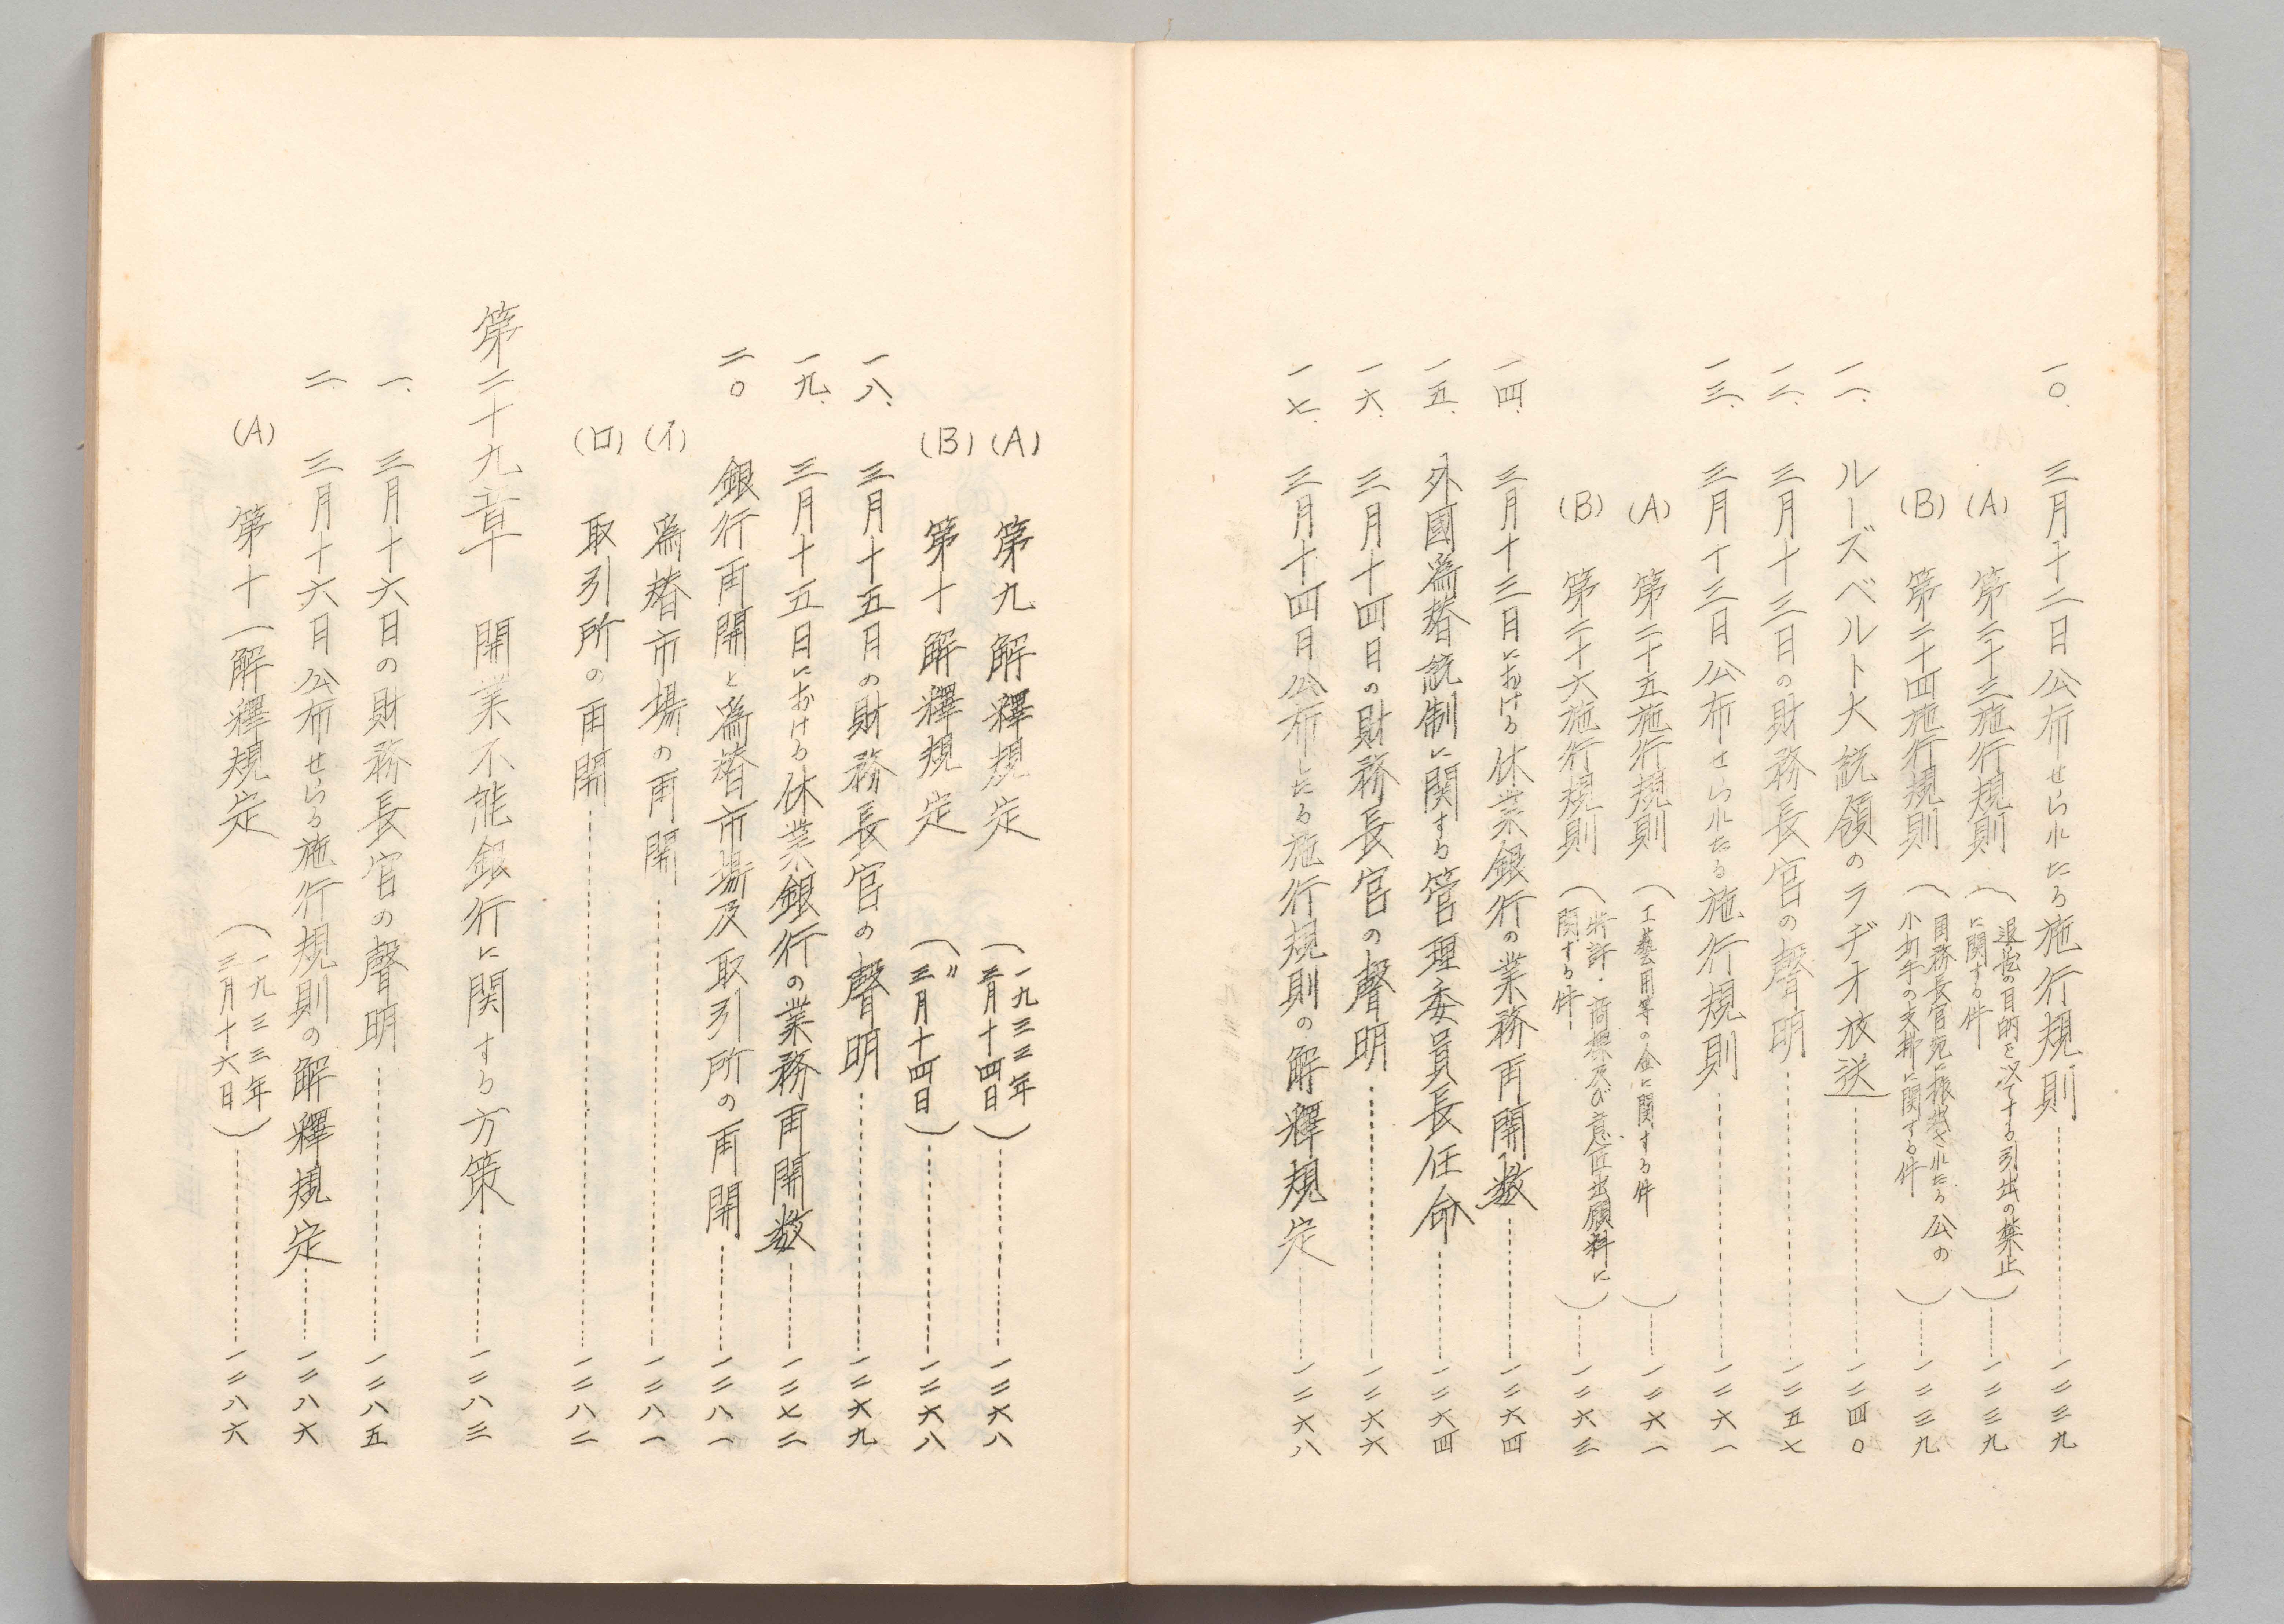 一〇. 三月十二日公布せられたる施行規則……一二三九
(A) 第二十三施行規則(退蔵の目的を以てする引出の禁止
に関する件)……一二三九
(B) 第二十四施行規則(財務長官宛に振出されたる公の
小切手の支払に関する件)……一二三九
一一. ルーズベルト大統領のラヂオ放送……一二四〇
一二. 三月十三日の財務長官の聲明……一二五七
一三. 三月十三日公布せられたる施行規則……一二六一
(A) 第二十五施行規則(工藝用等の金に関する件)……一二六一
(B) 第二十六施行規則(特許・商標及び意匠出願料に
関する件)……一二六三
一四. 三月十三日における休業銀行の業務再開数……一二六四
一五. 外國為替統制に関する管理委員長任命……一二六四
一六. 三月十四日の財務長官の聲明……一二六六
一七. 三月十四日公布したる施行規則の解釋規定……一二六八
(A) 第九解釋規定(一九三三年
三月十四日)……一二六八
(B) 第十解釋規定(〃
三月十四日)……一二六八
一八. 三月十五日の財務長官の聲明……一二六九
一九. 三月十五日における休業銀行の業務再開数……一二七二
二〇 銀行再開と為替市場及取引所の再開……一二八一
(イ) 為替市場の再開……一二八一
(ロ) 取引所の再開……一二八二
第二十九章 開業不能銀行に関する方策……一二八三
一. 三月十六日の財務長官の聲明……一二八五
二. 三月十六日公布せらる施行規則の解釋規定……一二八六
(A) 第十一解釋規定(一九三三年
三月十六日)……一二八六